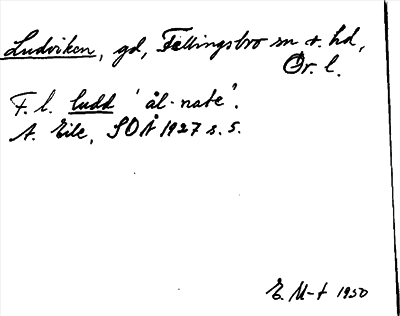 Ludviken, gd, Fellingsbro sn o. hd,
Ör. l.
F. l. ludd 'ål-nate'.
A. Eile, SOÅ 1927 s. 5.
E. M-t 1950